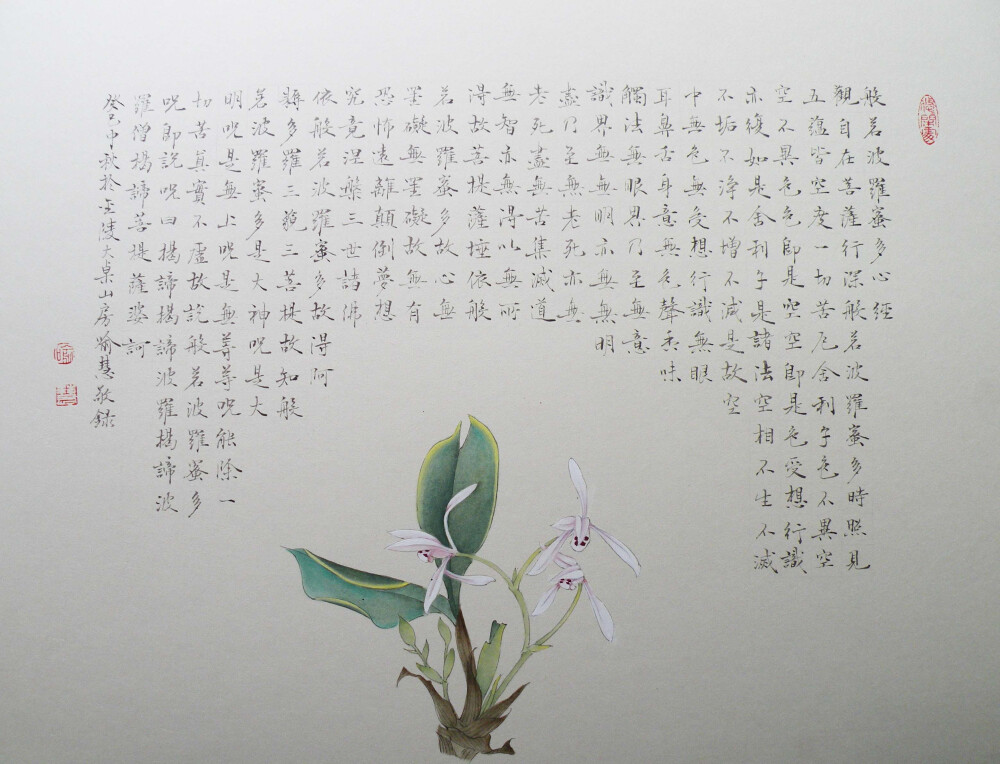 般若波羅蜜多心經
觀自在菩薩行深般若波羅蜜多時照見
五蘊皆空度一切苦厄舍利子色不異空
空不異色色即是空空即是色受想行識
亦復如是舍利子是諸法空相不生不滅
不垢不淨不增不減是故空
中無色無受想行識無眼
耳鼻舌身意無色聲香味
觸法無眼界乃至無意
識界無無明亦無無明
盡乃至無老死亦無
老死盡無苦集滅道
無智亦無得以無所
得故菩提薩埵依般
若波羅蜜多故心無
罣礙無罣礙故無有
恐怖遠離顛倒夢想
究竟涅槃三世諸佛
依般若波羅蜜多故得阿
耨多羅三藐三菩提故知般
若波羅蜜多是大神呪是大
明呪是無上呪是無等等呪能除一
切苦真實不虛故說般若波羅蜜多
呪即説呪曰揭諦揭諦波羅揭諦波
羅僧揭諦菩提薩婆訶
癸巳中秋於金陵大泉山房喻慧敬録